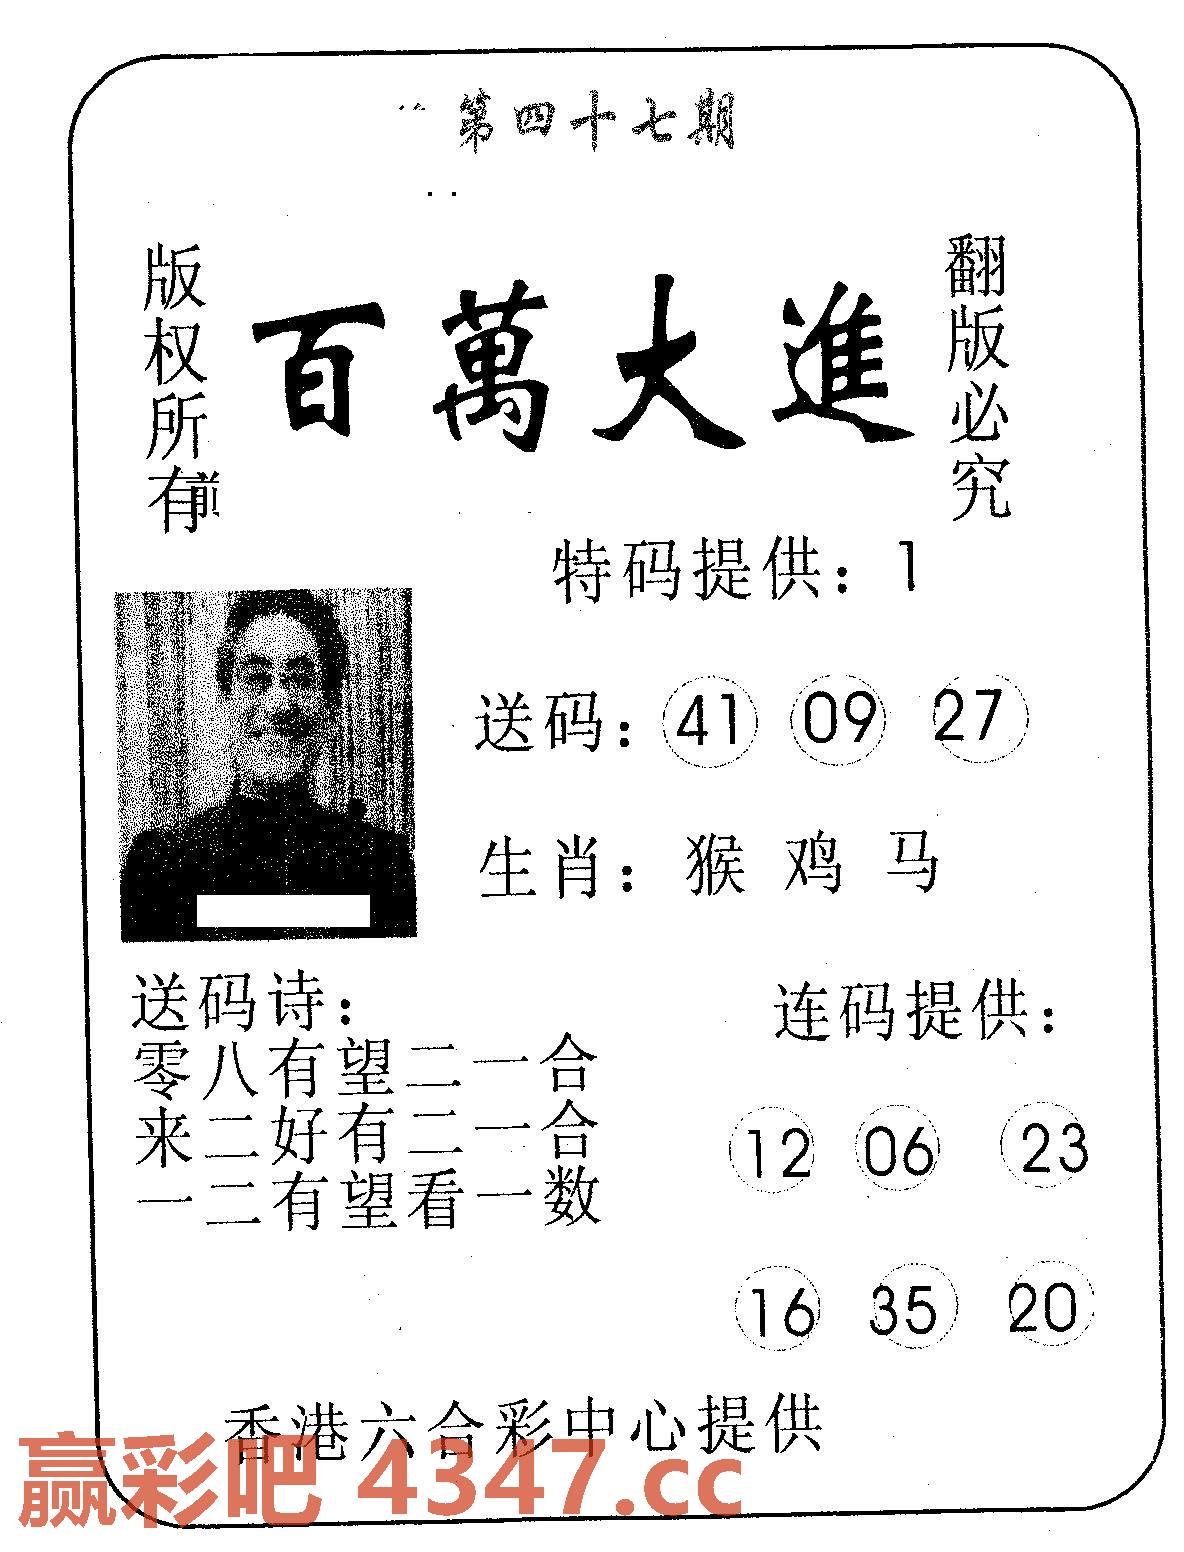 第四十七期
版权所有
百萬大進
翻版必究
特码提供：1
送码：41 09 27
生肖：猴 鸡 马
送码诗：
零八有望二一合
来二好有二一合
一二有望看一数
连码提供：
12 06 23
16 35 20
香港六合彩中心提供
赢彩吧 4347.cc